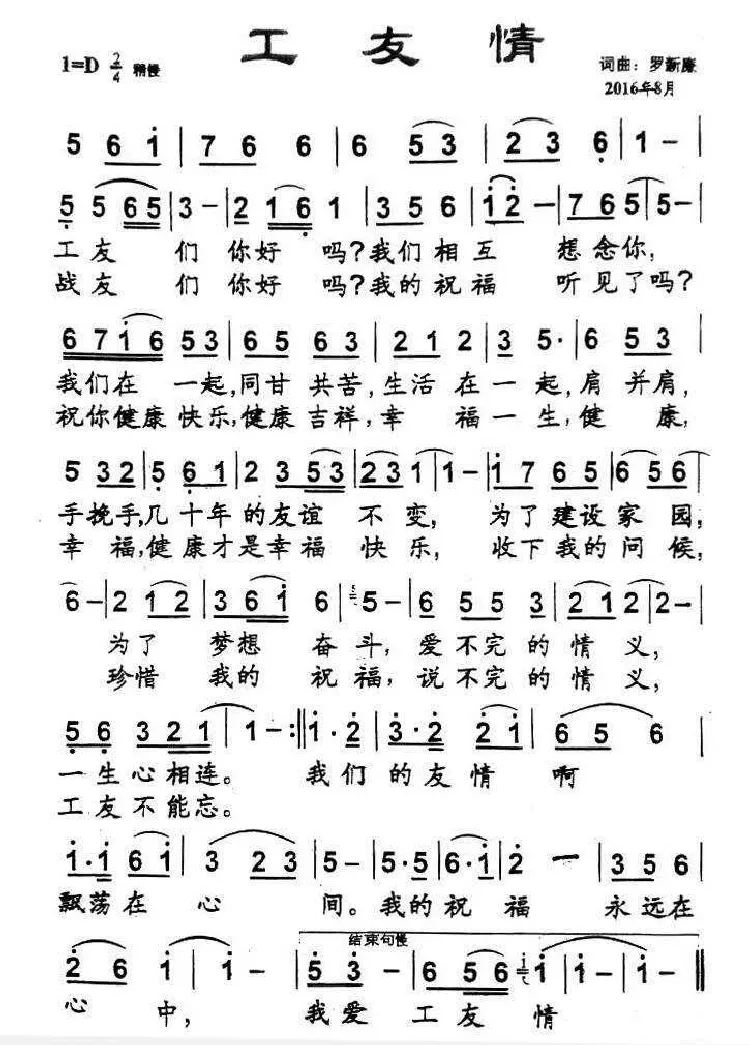 工友情
1=D 2/4 稍慢 词曲：罗新廉
2016年8月
5 6 i | 7 6 6 | 6 5 3 | 2 3 6 | 1 – |
5 5 6 5 | 3 – | 2 1 6 1 | 3 5 6 | i 2 – | 7 6 5 | 5 – |
工友 们你好 吗?我们相互 想念你,
战友 们你好 吗?我的祝福 听见了吗?
6 7 i 6 5 3 | 6 5 6 3 | 2 1 2 | 3 5· | 6 5 3 |
我们在 一起,同甘 共苦,生活 在 一 起,肩 并肩,
祝你健康快乐,健康吉祥,幸 福一生,健 康,
5 3 2 | 5 6 1 | 2 3 5 3 | 2 3 1 | 1 – | i 7 6 5 | 6 5 6 |
手挽手,几十年的友谊 不 变, 为了建设家园,
幸 福,健康才是幸福 快乐, 收下我的问候,
6 – | 2 1 2 | 3 6 i 6 | 5 – | 6 5 5 3 | 2 1 2 | 2 – |
为了 梦想 奋斗,爱不完的情义,
珍惜 我的 祝福,说不完的情义,
5 6 3 2 1 | 1 – :‖ i· 2 | 3· 2 2 i | 6 5 6 |
一生心相连。 我们的友情 啊
工友不能忘。
i· i 6 i | 3 2 3 | 5 – | 5· 5 | 6· i | 2 – | 3 5 6 |
飘荡在 心 间。我的祝福 永远在
结束句慢
2 6 | i | i – | 5 3 | 6 5 6 | i | i – | i – ‖
心 中, 我爱 工友 情